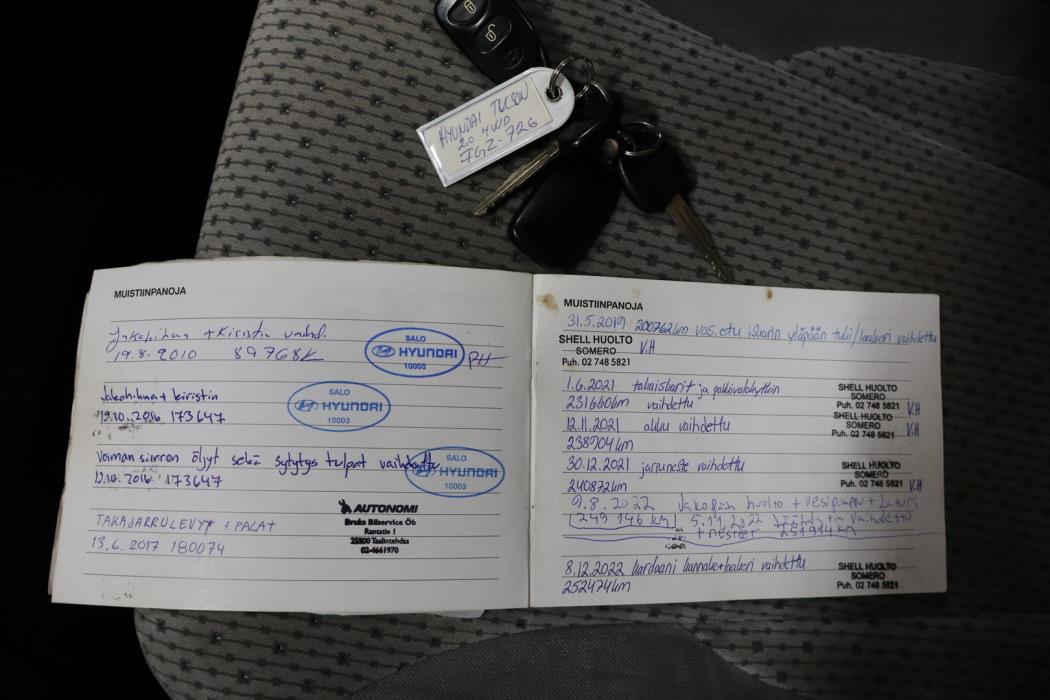 HYUNDAI TUCSON
2.0 4WD
FGZ-726
MUISTIINPANOJA
Jakohihna + kiristin vaihd.
19.8.2010 89768k
SALO
HYUNDAI
10003
Jakohihna + kiristin
19.10.2016 173647
SALO
HYUNDAI
10003
Voiman siirron öljyt sekä sytytys tulpat vaihdettu
19.10.2016 173647
SALO
HYUNDAI
10003
TAKAJARRULEVYT + PALAT
13.6.2017 180074
AUTONOMI
Bruks Bilservice Öb
Rantatie 1
25900 Taalintehdas
02-4661970
MUISTIINPANOJA
31.5.2019 200762km vas.etu iskarin yläpään tuki/laakeri vaihdettu
SHELL HUOLTO
SOMERO V.H
Puh. 02 748 5821
1.6.2021 takaiskarit ja pakkivalokytkin
231660km vaihdettu
SHELL HUOLTO
SOMERO
Puh. 02 748 5821 V.H
12.11.2021 akku vaihdettu
238904km
SHELL HUOLTO
SOMERO
Puh. 02 748 5821 V.H
30.12.2021 jarruneste vaihdettu
240872km
SHELL HUOLTO
SOMERO
Puh. 02 748 5821 V.H
9.8.2022 Jakopään huolto + vesipumppu + Laturi
249 146 km 5.11.2022 vaihdettu
+ nesteet
8.12.2022 kardaani kannake+laakeri vaihdettu
252474km
SHELL HUOLTO
SOMERO
Puh. 02 748 5821